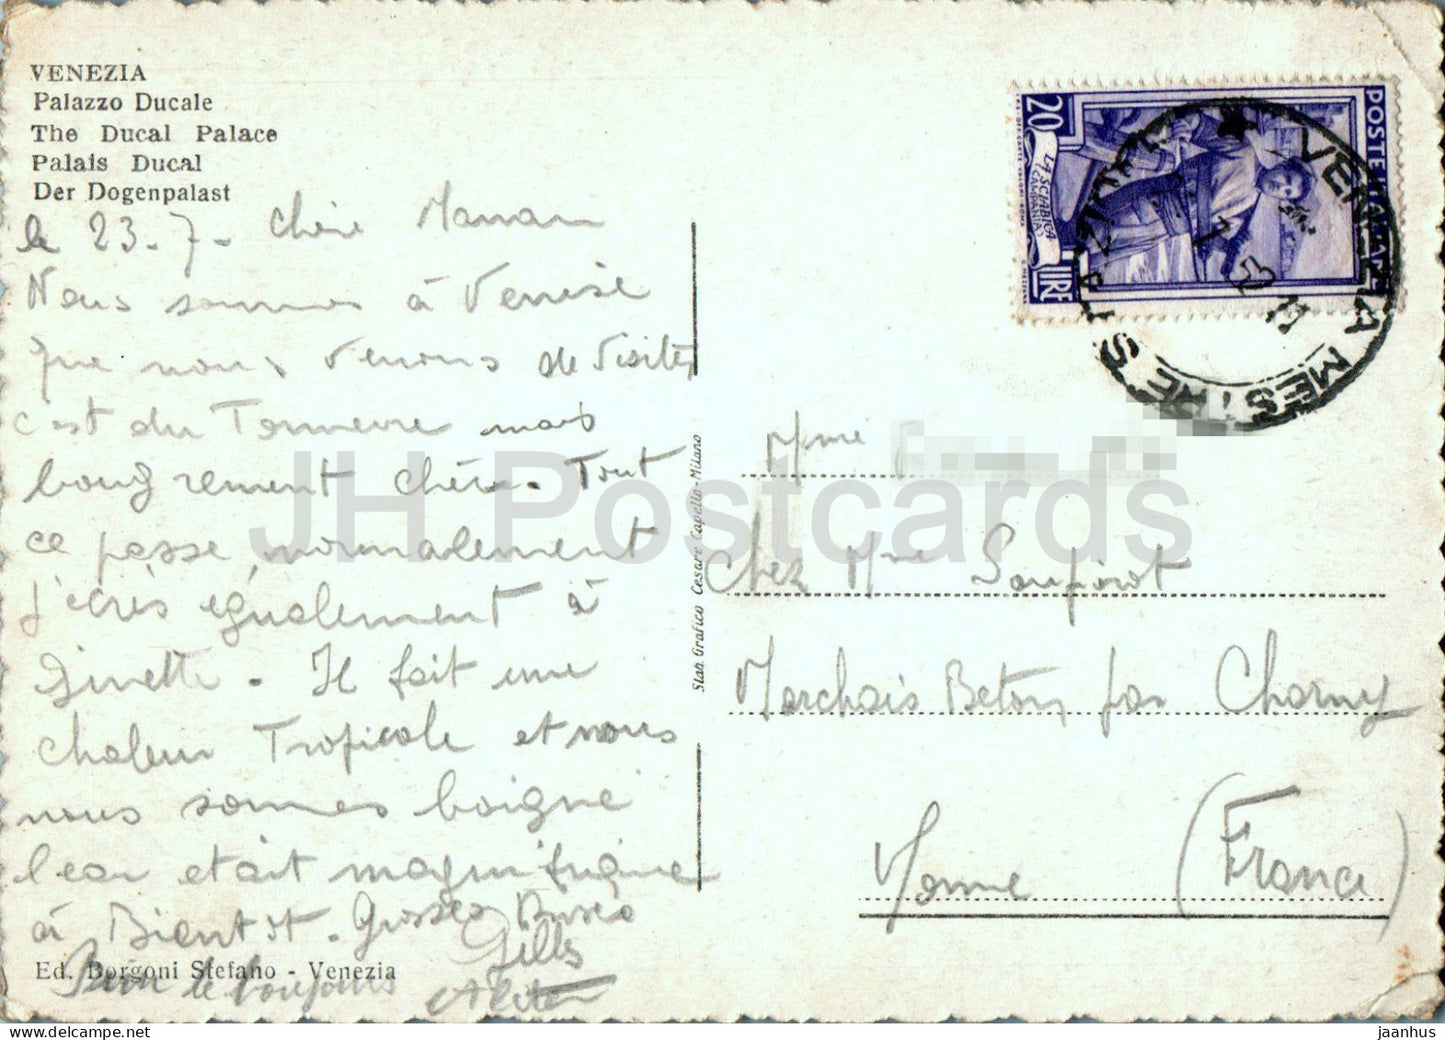 VENEZIA
Palazzo Ducale
The Ducal Palace
Palais Ducal
Der Dogenpalast
le 23-7- Chère Maman
Nous sommes à Venise
que nous venons de visiter
c'est du Tonnerre mais
bougrement chère. Tout
ce passe normalement
J'écris également à
Ginette. Il fait une
chaleur Tropicale et nous
nous sommes baigné
l'eau etait magnifique
à Bientot. Grosses Bises
Gilles
Ed. Borgoni Stefano - Venezia
toujours
Stab. Grafico Cesare Capello - Milano
POSTE ITALIANE
20 LIRE
LA SCIABICA
(CAMPANIA)
VENEZIA MESTRE
Mme
Chez Mme
Marchais Beton par Charny
Yonne (France)
JH Postcards
jaanhus
delcampe.net